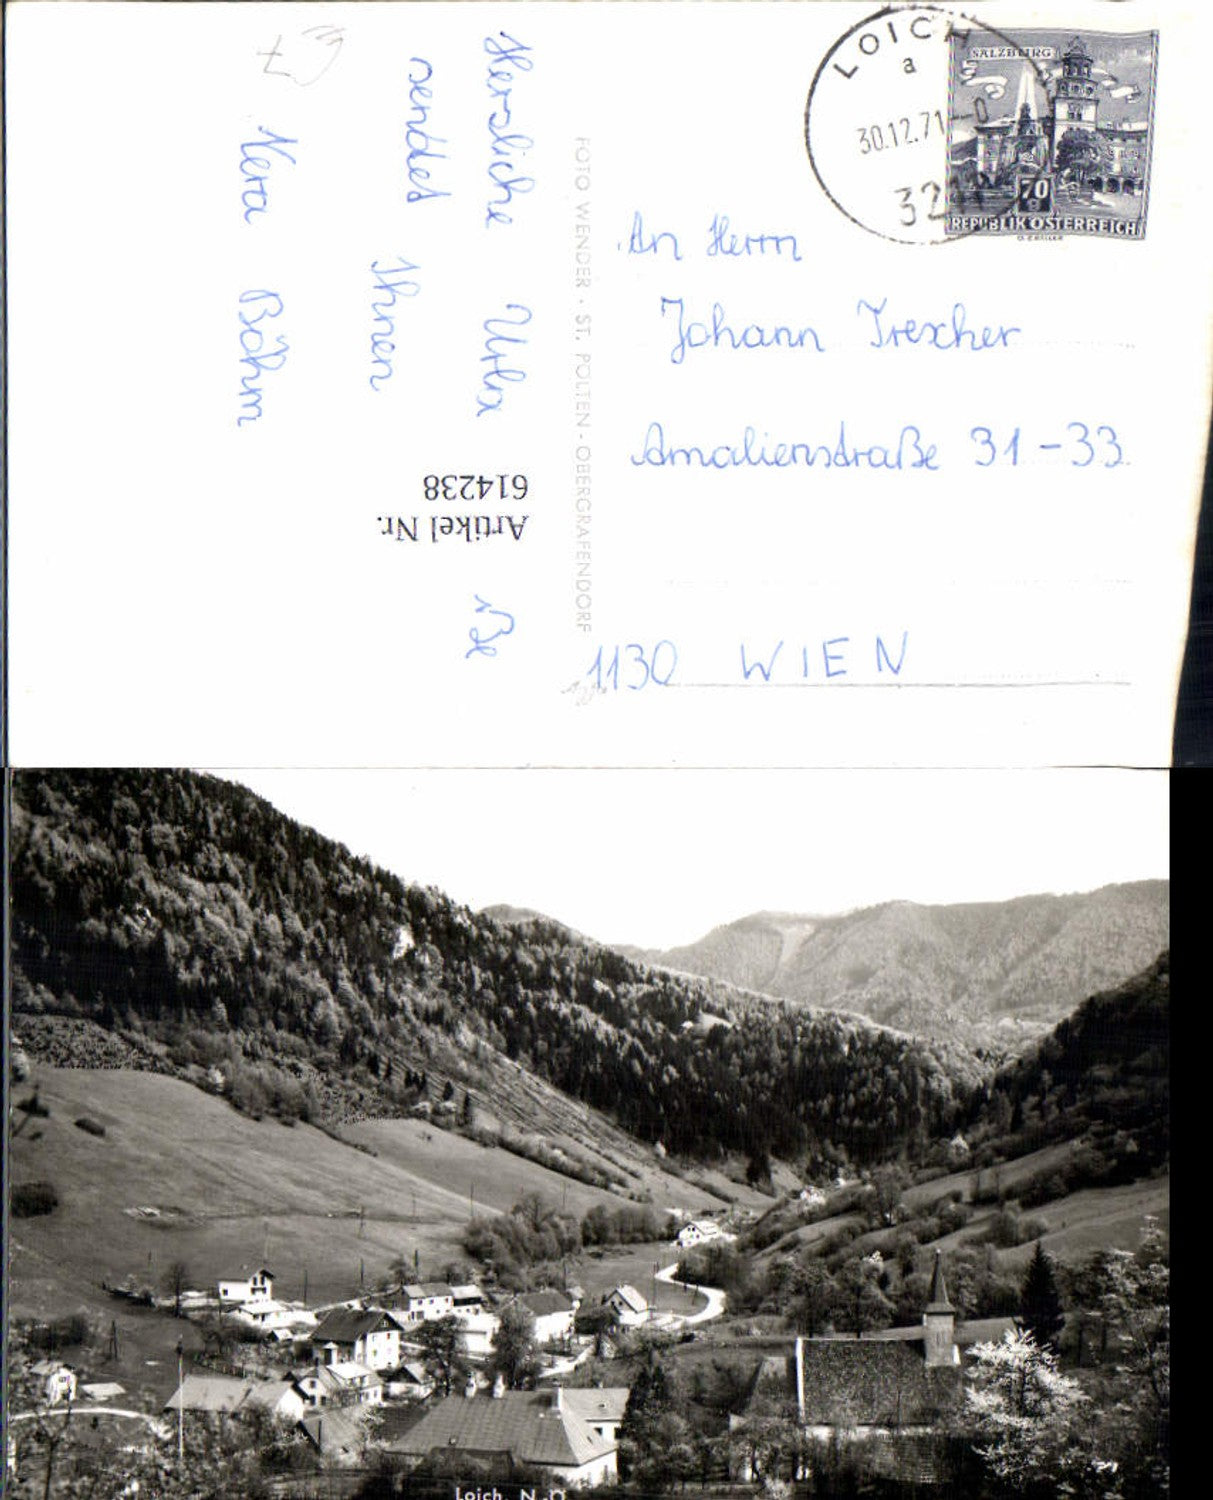 LOICH
a
30.12.71-0
SALZBURG
70
REPUBLIK ÖSTERREICH
An Herrn
Johann Trexcher
Amalienstraße 31-33
1130 WIEN
FOTO WENDER · ST. PÖLTEN - OBERGRAFENDORF
Herzliche Urla
sendet Ihnen
Vera Böhm
Artikel Nr.
614238
Loich, N.-Ö.